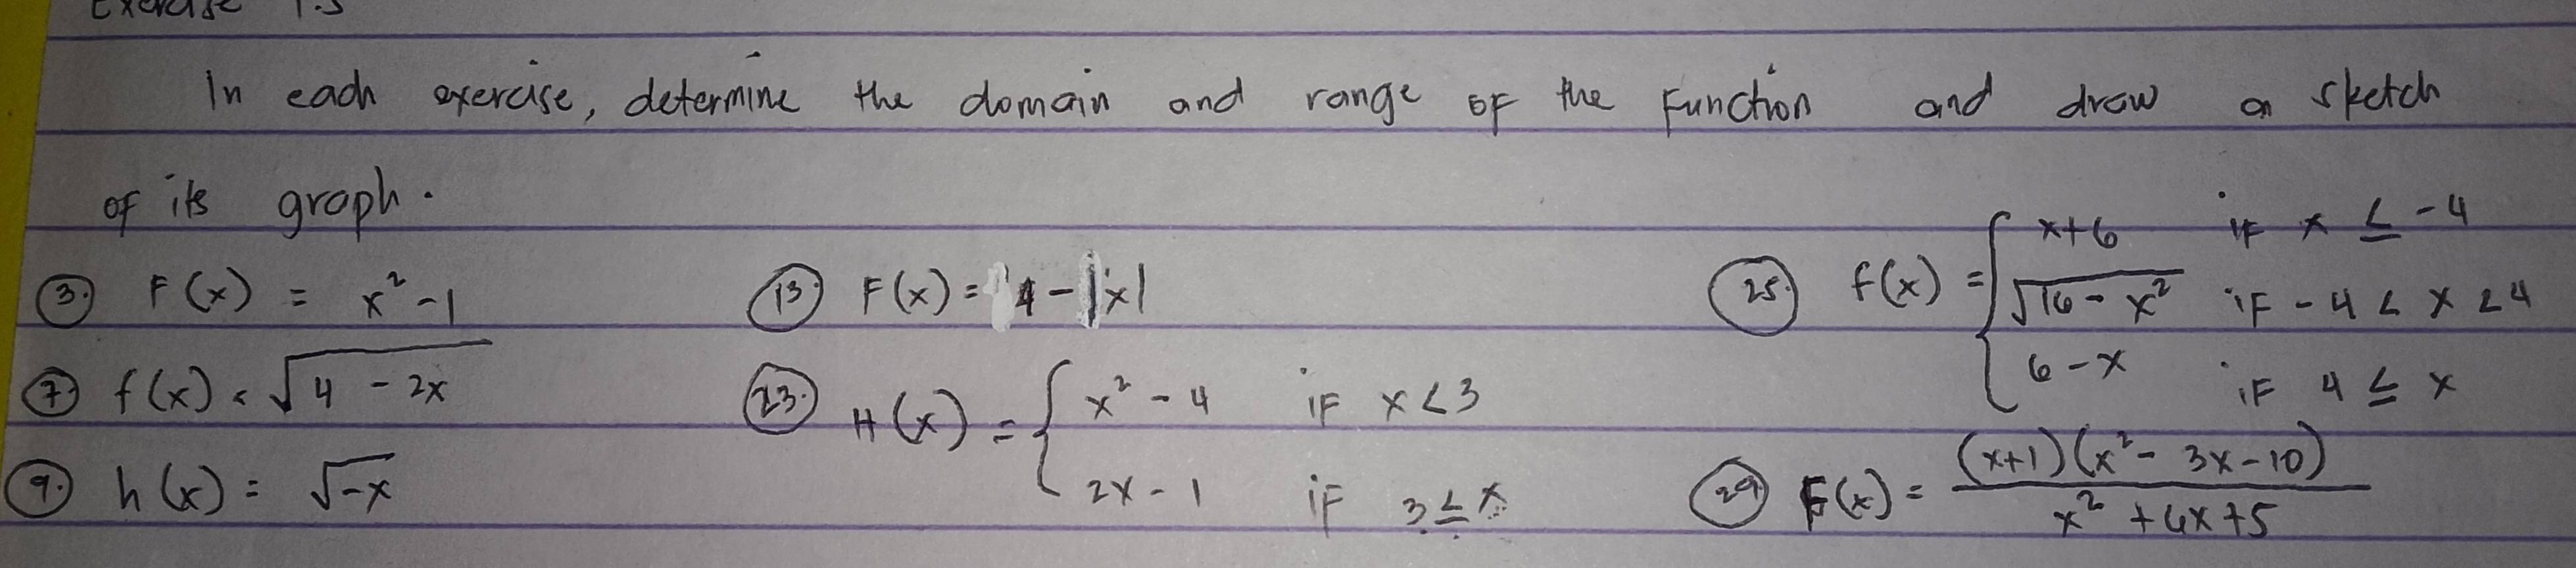 Exercise 1.3
In each exercise, determine the domain and range of the function and draw a sketch
of its graph.
3. F(x) = x² - 1
7. f(x) = √(4 - 2x)
9. h(x) = √-x
13. F(x) = 4 - |x|
23. H(x) = { x² - 4 if x < 3
2x - 1 if 3 ≤ x
25. f(x) = { x+6 if x ≤ -4
√(16 - x²) if -4 < x < 4
6 - x if 4 ≤ x
29. F(x) = (x+1)(x² - 3x - 10)
x² + 6x + 5